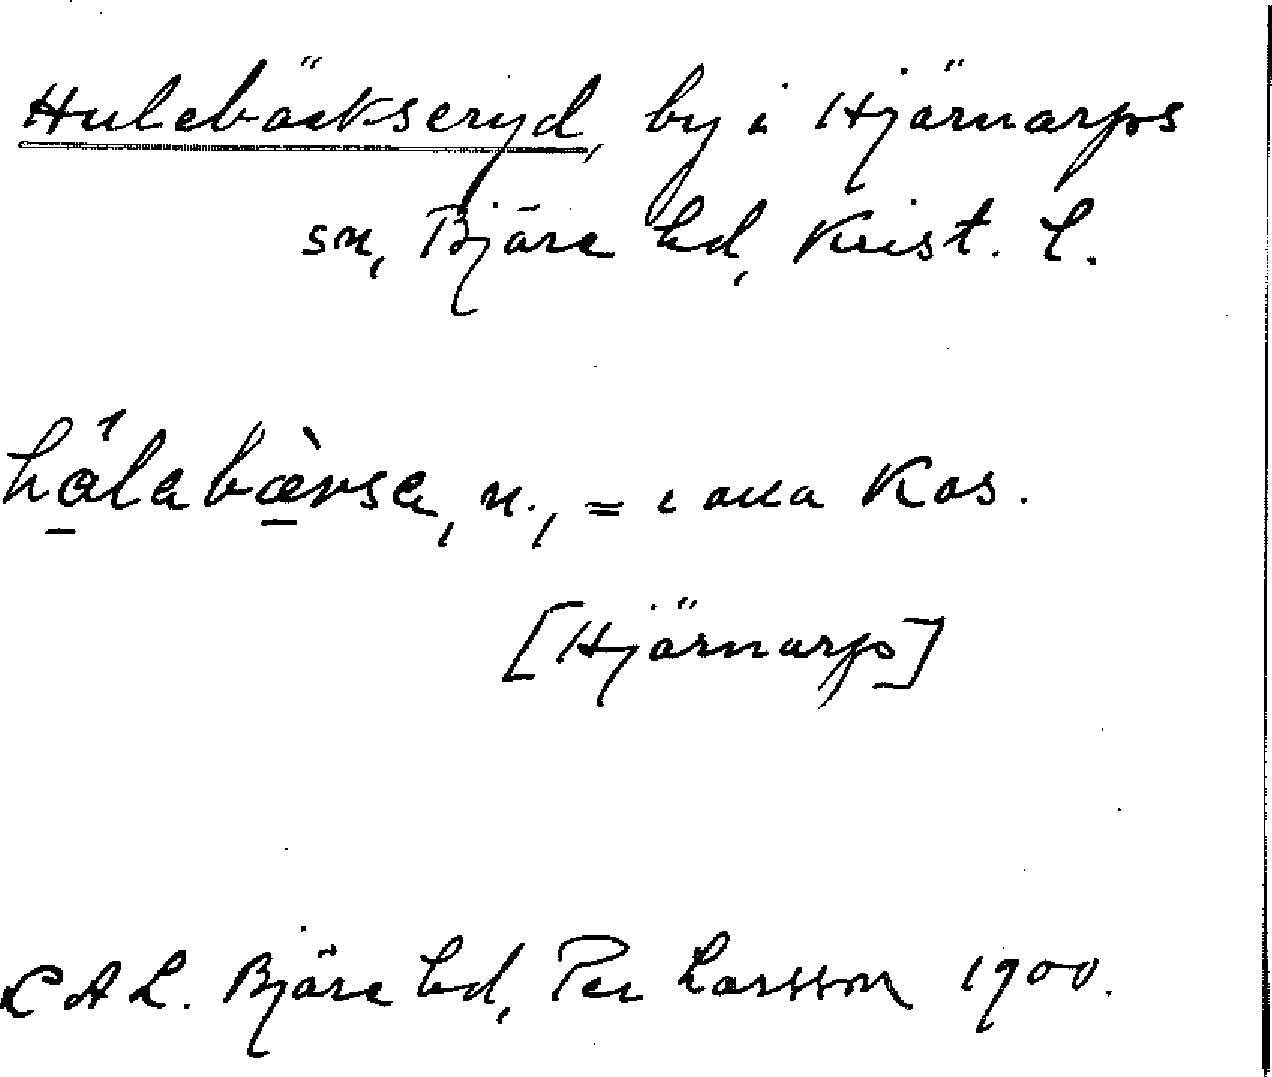 Hulebäckseryd, by i Hjärnarps
sn, Bjäre hd, Krist. l.
n., =
[Hjärnarp]
LAL. Bjäre hd, Per Larsson 1900.